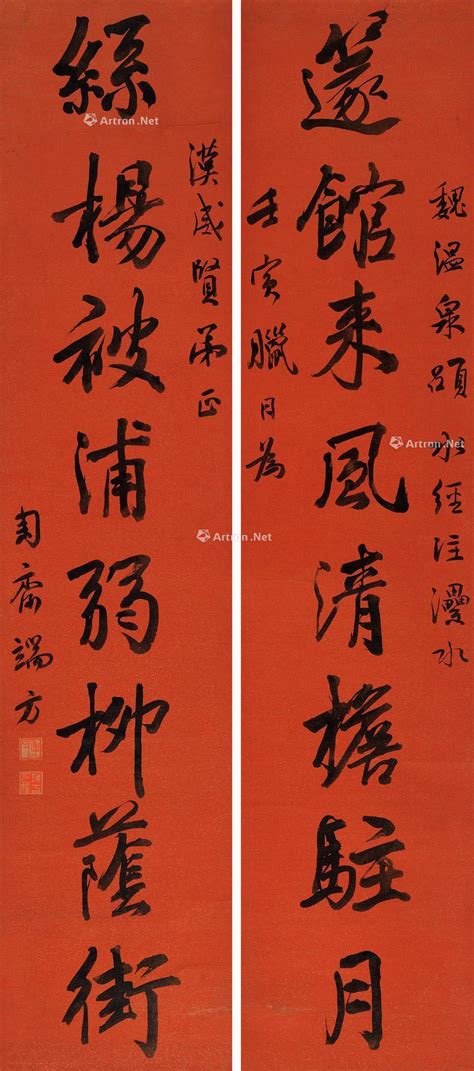 魏温泉頌水經注灅水
邃館来風清檐駐月
壬寅臘月為
漢威賢弟正
絲楊被浦弱柳蔭街
匋齋端方
Artron.Net
Artron.Net
Artron.Net